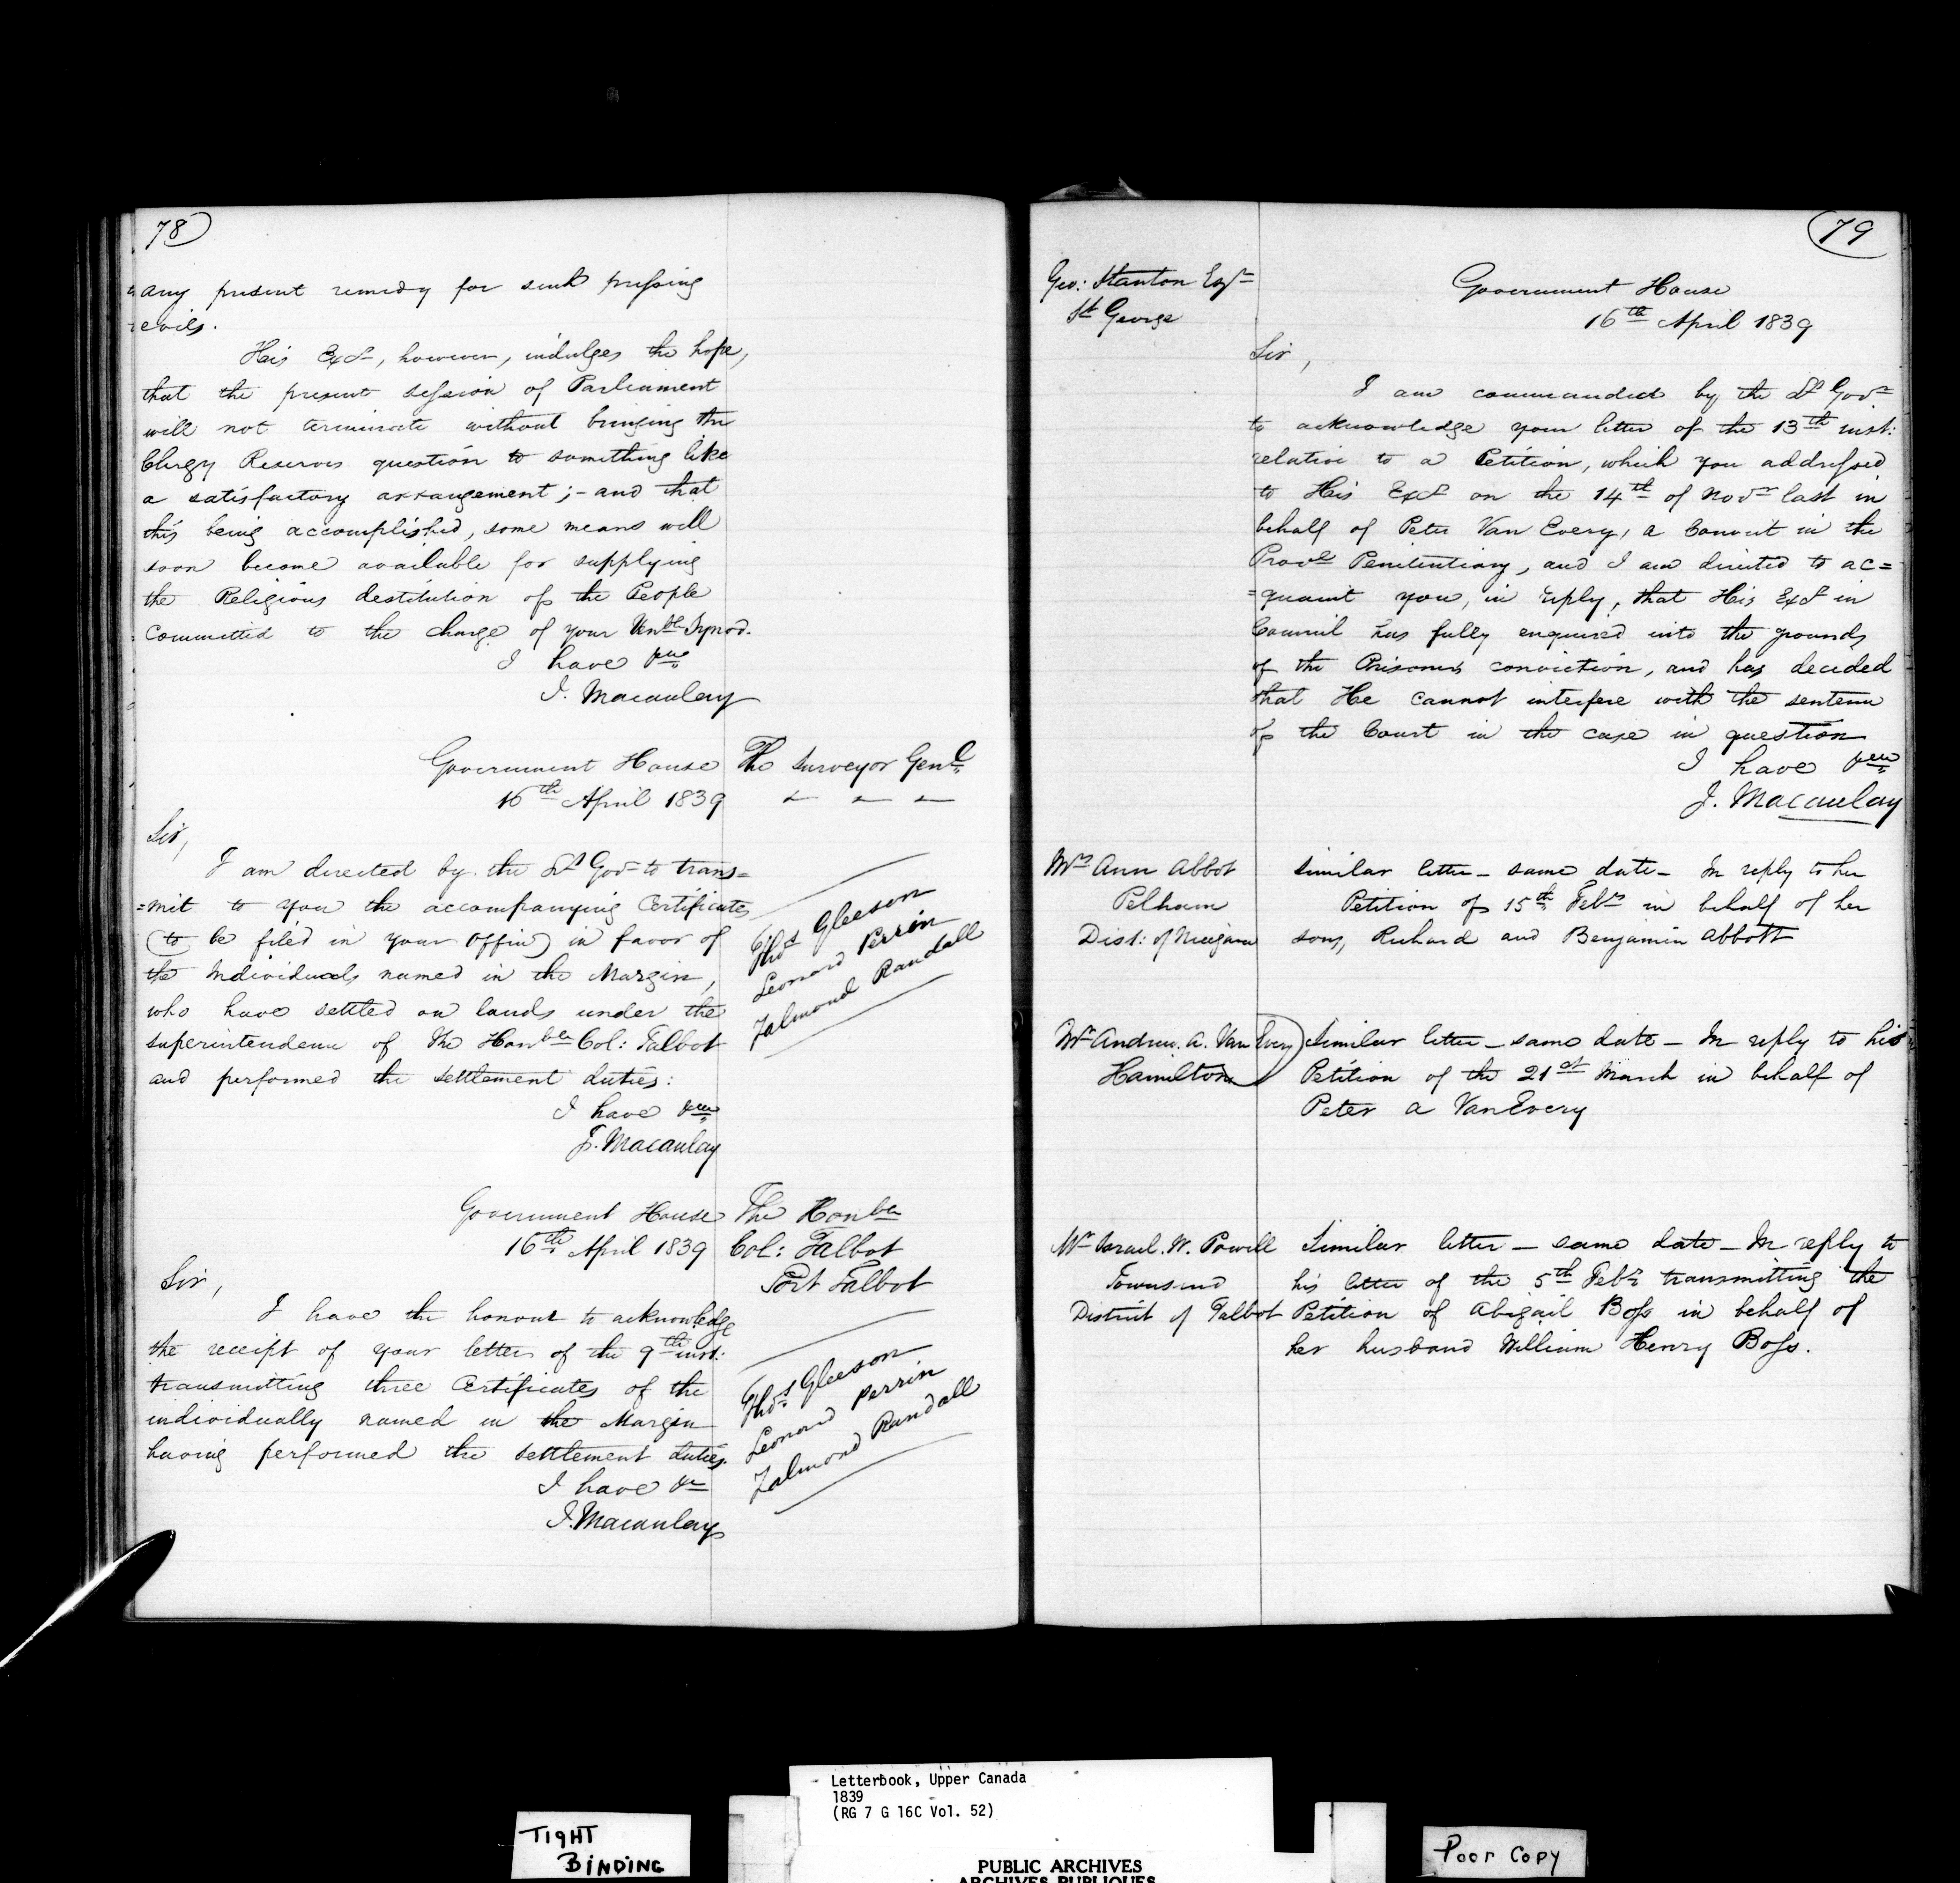 78
any present remedy for such pressing
evils.
His Excy, however, indulges the hope,
that the present session of Parliament
will not terminate without bringing the
Clergy Reserves question to something like
a satisfactory arrangement; - and that
this being accomplished, some means will
soon become available for supplying
the Religious destitution of the People
committed to the charge of your Venble Synod.
I have &c
J. Macaulay
Government House
16th April 1839
The Surveyor Genl
Sir,
I am directed by the Lt Govr to trans=
=mit to you the accompanying Certificates
(to be filed in your Office) in favor of
the Individuals named in the Margin,
who have settled on lands under the
superintendence of The Honble Col: Talbot
and performed the settlement duties:
I have &c
J. Macaulay
Thos Gleeson
Leonard Perrin
Zalmond Randall
Government House
16th April 1839
The Honble
Col: Talbot
Port Talbot
Sir,
I have the honour to acknowledge
the receipt of your letter of the 9th inst:
transmitting three Certificates of the
individually named in the Margin
having performed the settlement duties.
I have &c
J. Macaulay
Thos Gleeson
Leonard Perrin
Zalmond Randall
79
Geo: Stanton Esqr
St George
Government House
16th April 1839
Sir,
I am commanded by the Lt Govr
to acknowledge your letter of the 13th inst:
relative to a Petition, which you addressed
to His Excy on the 14th of Novr last in
behalf of Peter Van Every, a Convict in the
Provl Penitentiary, and I am directed to ac=
=quaint you, in reply, that His Excy in
Council has fully enquired into the grounds
of the Prisoners conviction, and has decided
that He cannot interfere with the sentence
of the Court in the case in question
I have &c
J. Macaulay
Mrs Ann Abbot
Pelham
Dist: of Niagara
Similar letter - same date - In reply to her
Petition of 15th Febry in behalf of her
sons, Richard and Benjamin Abbott
Mr Andrew. A. Van Every
Hamilton
Similar letter - same date - In reply to his
Petition of the 21st March in behalf of
Peter a VanEvery
Mr Israel. W. Powell
Townsend
District of Talbot
Similar letter - same date - In reply to
his letter of the 5th Febry transmitting the
Petition of Abigail Boss in behalf of
her husband William Henry Boss.
Letterbook, Upper Canada
1839
(RG 7 G 16C Vol. 52)
TIGHT
BINDING
PUBLIC ARCHIVES
ARCHIVES PUBLIQUES
Poor Copy